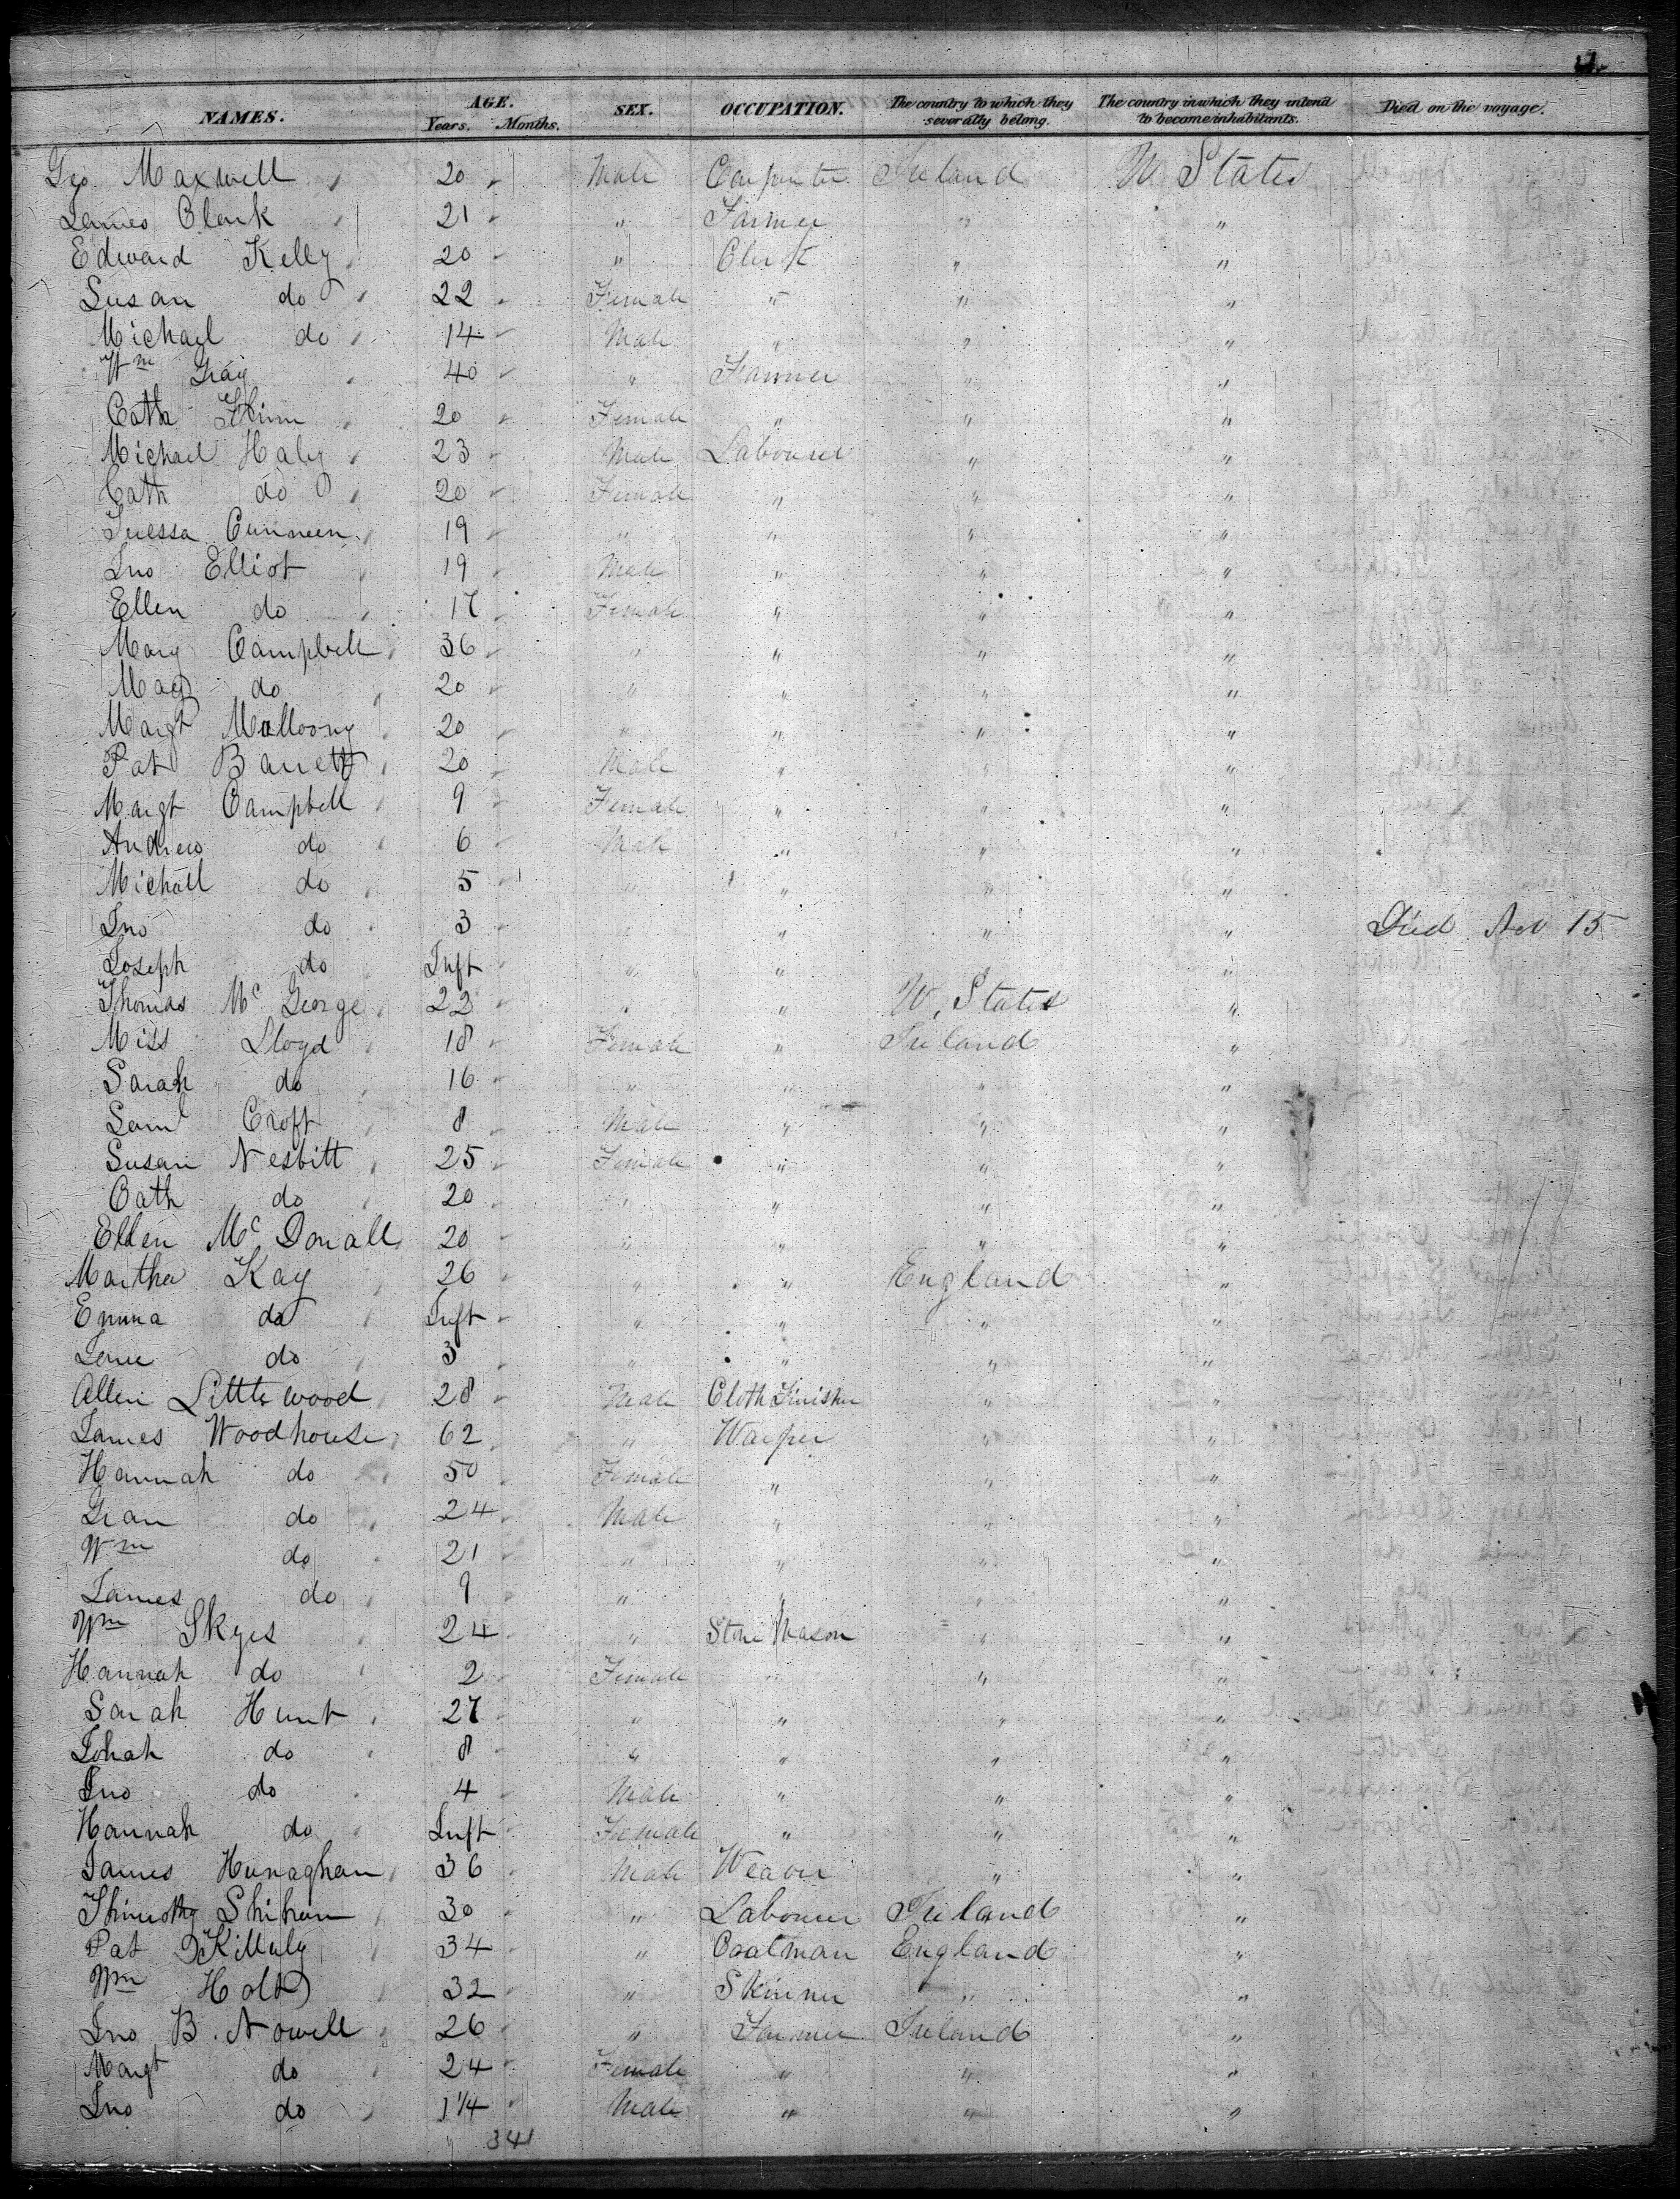 NAMES. AGE. Years. Months. SEX. OCCUPATION. The country to which they severally belong. The country in which they intend to become inhabitants. Died on the voyage.
Geo Maxwell 20 Male Carpenter Ireland U States
James Clark 21 " Farmer " "
Edward Kelly 20 " Clerk " "
Susan do 22 Female " " "
Michael do 14 Male " " "
Wm Gray 40 " Farmer " "
Cath 20 Female " " "
Michael Haly 23 Male Labourer " "
Cath do 20 Female " " "
Tressa Cunneen 19 " " " "
Jno Elliot 19 Male " " "
Ellen do 17 Female " " "
Mary Campbell 36 " " " "
Mary do 20 " " " "
Margt Malloony 20 " " " "
Pat Barrett 20 Male " " "
Margt Campbell 9 Female " " "
Andrew do 6 Male " " "
Michall do 5 " " " "
Jno do 3 " " " " Died Nov 15
Joseph do Inft " " " "
Thomas Mc George 22 " " U, States "
Miss Lloyd 18 Female " Ireland "
Sarah do 16 " " " "
Saml Croft 8 Male " " "
Susan Nesbitt 25 Female " " "
Cath do 20 " " " "
Ellen Mc Donall 20 " " " "
Martha Kay 26 " " England "
Emma do Inft " " " "
Jane do 3 " " " "
Allen Littlewood 28 Male Cloth Finisher " "
James Woodhouse 62 " Warper " "
Hannah do 50 Female " " "
Gran do 24 Male " " "
Wm do 21 " " " "
James do 9 " " " "
Wm Skyes 24 " Stone Mason " "
Hannah do 2 Female " " "
Sarah Hunt 27 " " " "
do 8 " " " "
Jno do 4 Male " " "
Hannah do Inft Female " " "
James Hunaghan 36 Male Weaver " "
Thimothy Shihan 30 " Labourer Ireland "
Pat Killuly 34 " Coalman England "
Wm Holt 32 " Skinner " "
Jno B. Nowell 26 " Farmer Ireland "
Margt do 24 Female " " "
Jno do 1 1/4 Male " " "
341